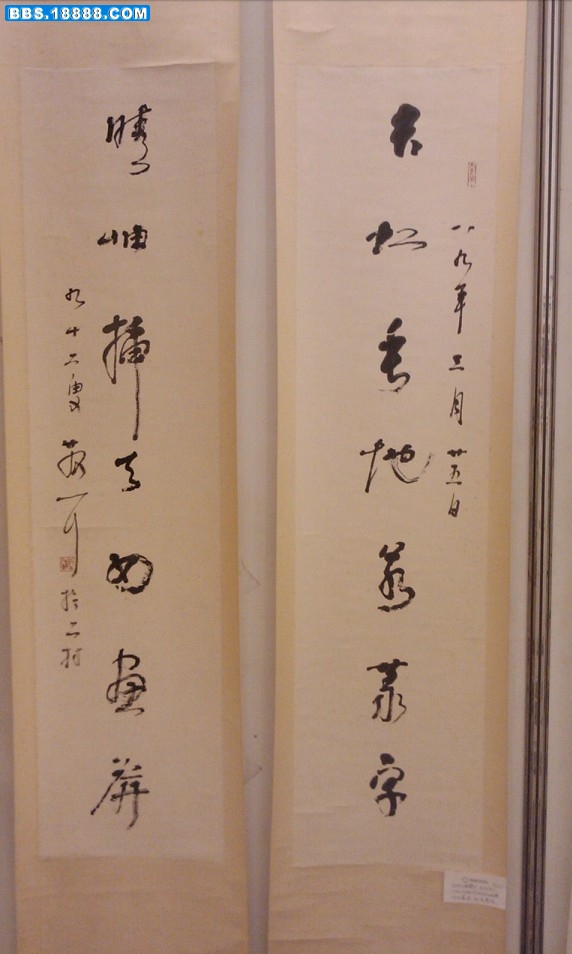 BBS.18888.COM
古松垂地若篆字
八九年三月廿五日
晴岫插天如画屏
九十二叟
於二村